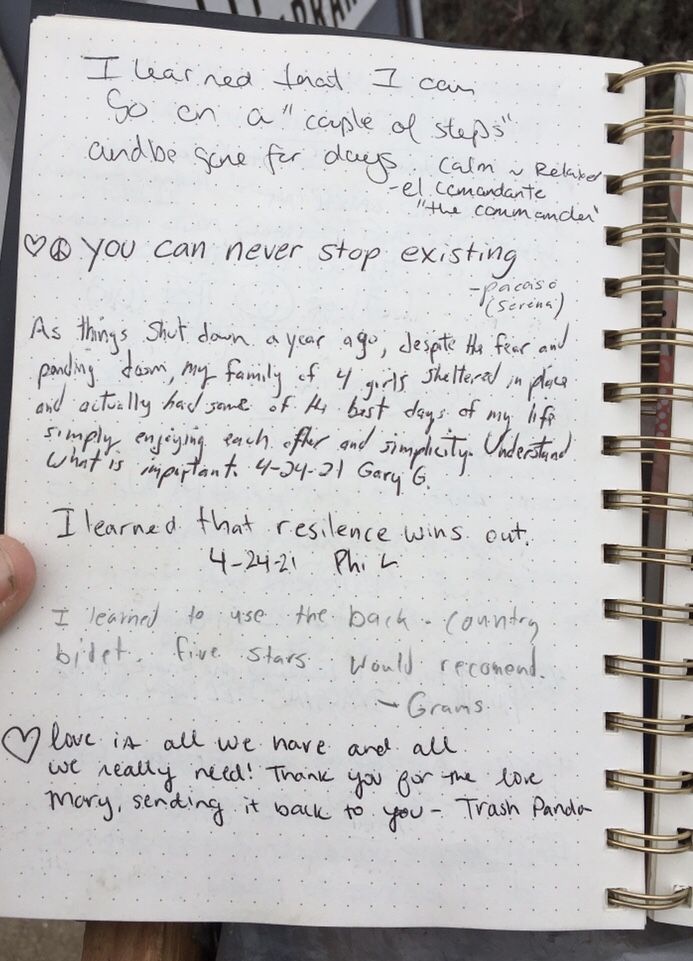 I learned that I can
Go on a "couple of steps"
and be gone for days. Calm ~ Relaxed
- el comandante
"the commander"
♡☮ you can never stop existing
- pacasó
(Serena)
As things shut down a year ago, despite the fear and
pending doom, my family of 4 girls sheltered in place
and actually had some of the best days of my life
simply enjoying each other and simplicity. Understand
what is important. 4-24-21 Gary G.
I learned that resilence wins out.
4-24-21 Phil
I learned to use the back-country
bidet. five stars. Would recomend.
- Grams
♡ love is all we have and all
we really need! Thank you for the love
Mary, sending it back to you - Trash Panda